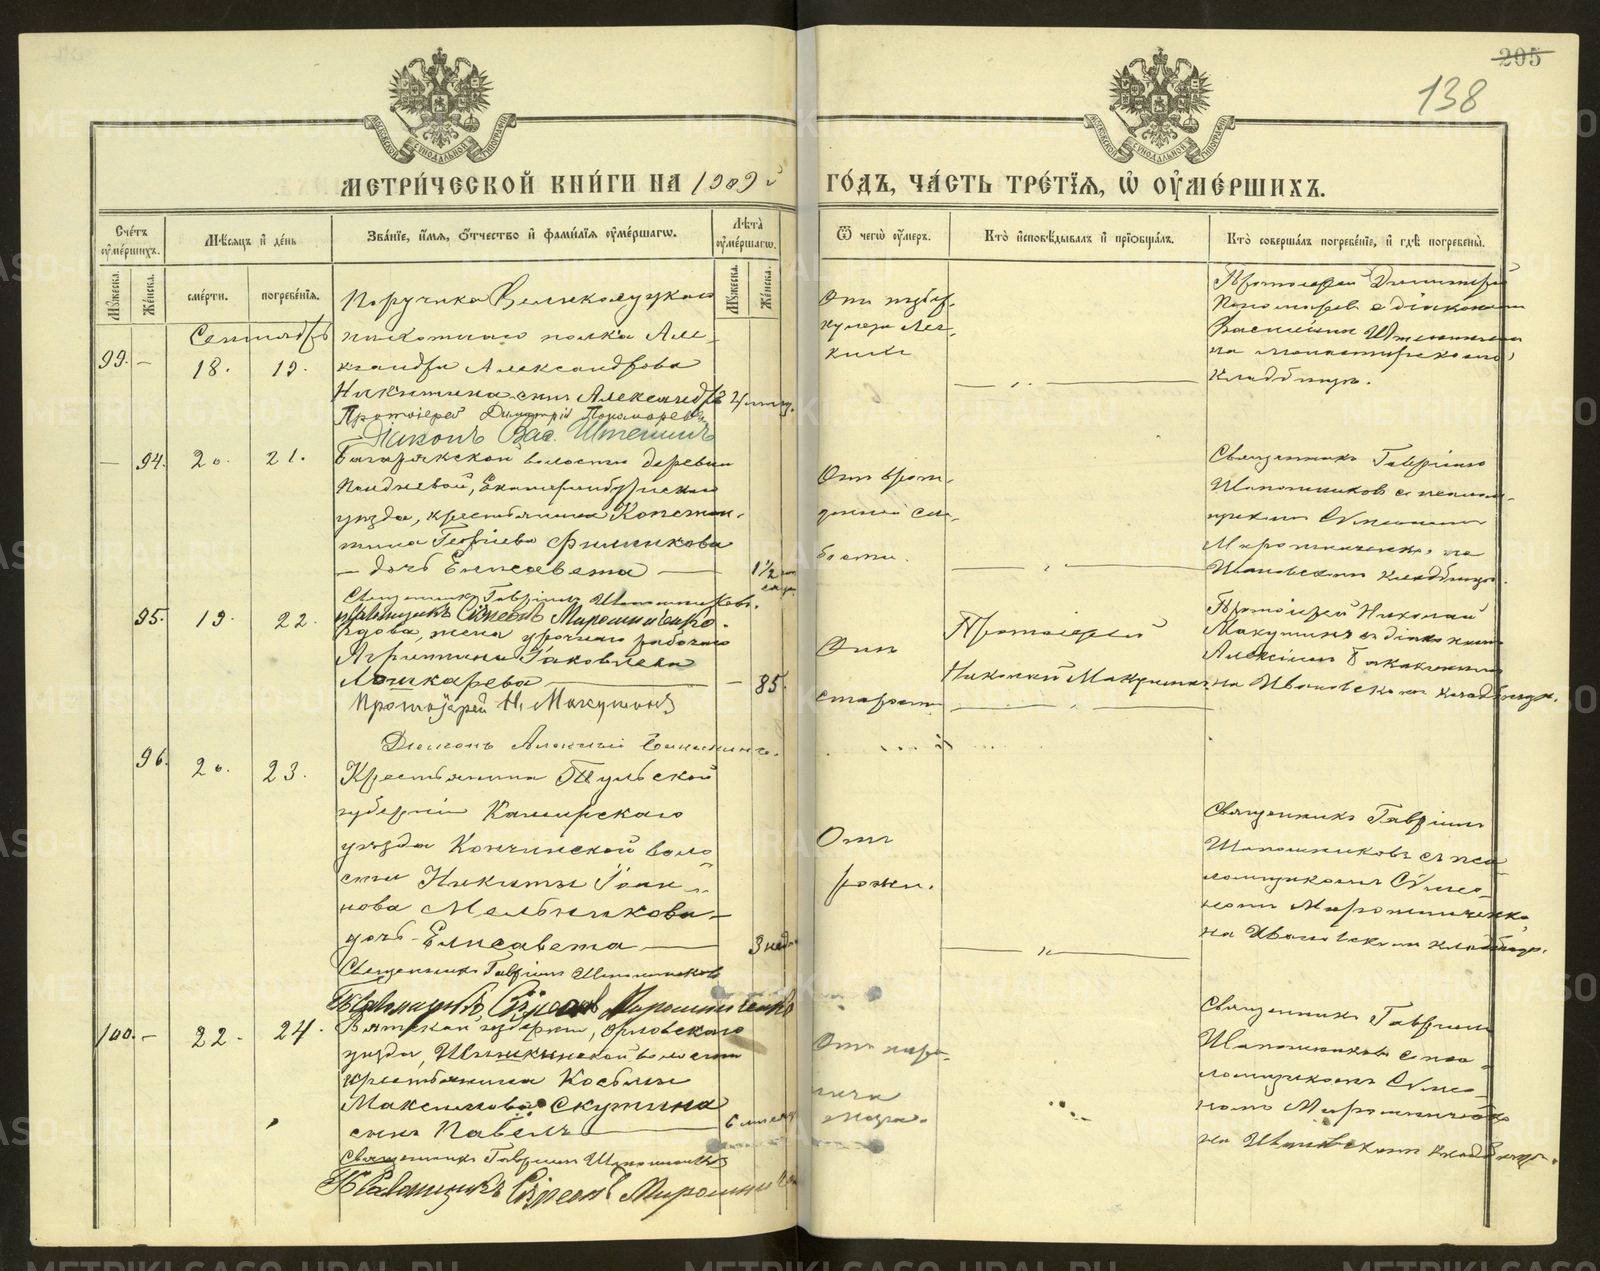 205
138
МЕТРИ́ЧЕСКОЙ КНИ́ГИ НА 1909 й ГО́ДЪ, ЧА́СТЬ ТРЕ́ТІЯ, Ѽ ОУ҆МЕ́РШИХЪ.
Сче́тъ оу҆ме́ршихъ.
Мѣ́сяцъ и҆ де́нь
Зва́нїе, и҆́мя, ѻ҆́тчество и҆ фами́лїя оу҆ме́ршагѡ.
Лѣ́та оу҆ме́ршагѡ.
Ѿ чегѡ̀ оу҆́меръ.
Кто̀ и҆сповѣ́дывалъ и҆ прїѡбща́лъ.
Кто̀ соверша́лъ погребе́нїе, и҆ гдѣ̀ погребены̀.
Мꙋ́жеска.
Же́нска.
сме́рти.
погребе́нїя.
Мꙋ́жеска.
Же́нска.
Сентябрь
99. — 18. 19.
Поручика Великолуцкаго
пѣхотнаго полка Але-
ксандра Александрова
Никитина сынъ Александръ
Протоіерей Димитрій Пономаревъ
Діаконъ Вас.
Отъ тубер-
кулеза лег-
кихъ
Протоіерей Димитрій
Пономаревъ съ діакономъ
Василіемъ
на монастырскомъ
кладбищѣ.
— 94. 20. 21.
Багарякской волости деревни
Екатеринбургскаго
уѣзда, крестьянина Констан-
тина Георгіева Филинкова
— дочь Елисавета —
1½
Священникъ Гавріилъ Шапошниковъ.
Псаломщикъ Сѵмеонъ Мирошниченко.
Отъ врож-
денной сла-
бости.
Священникъ Гавріилъ
Шапошниковъ съ псалом-
щикомъ Сѵмеономъ
Мирошниченко, на
Ивановскомъ кладбищѣ.
95. 19. 22.
Вдова, жена урочнаго рабочаго
Агриппина Іаковлева
Лошкарева — 85.
Протоіерей Н. Макушинъ
Діаконъ Алексій
Отъ
старости
Протоіерей
Николай Макушинъ
Протоіерей Николай
Макушинъ съ діакономъ
Алексіемъ
на Ивановскомъ кладбищѣ.
96. 20. 23.
Крестьянина Тульской
губерніи Каширскаго
уѣзда Кончинской воло-
сти Никиты Іоан-
нова Мельникова
дочь Елисавета — 3 нед.
Священникъ Гавріилъ Шапошниковъ
Псаломщикъ Сѵмеонъ Мирошниченко
Отъ
рожи.
Священникъ Гавріилъ
Шапошниковъ съ пса-
ломщикомъ Сѵмео-
номъ Мирошниченко
на Ивановскомъ кладбищѣ.
100. — 22. 24.
Вятской губерніи, Орловскаго
уѣзда, волости
крестьянина Косьмы
Максимова Скутина
сынъ Павелъ — 6
Священникъ Гавріилъ Шапошниковъ
Псаломщикъ Сѵмеонъ Мирошниченко
Отъ пара-
лича
мозга.
Священникъ Гавріилъ
Шапошниковъ съ пса-
ломщикомъ Сѵмео-
номъ Мирошниченко
на Ивановскомъ кладбищѣ.